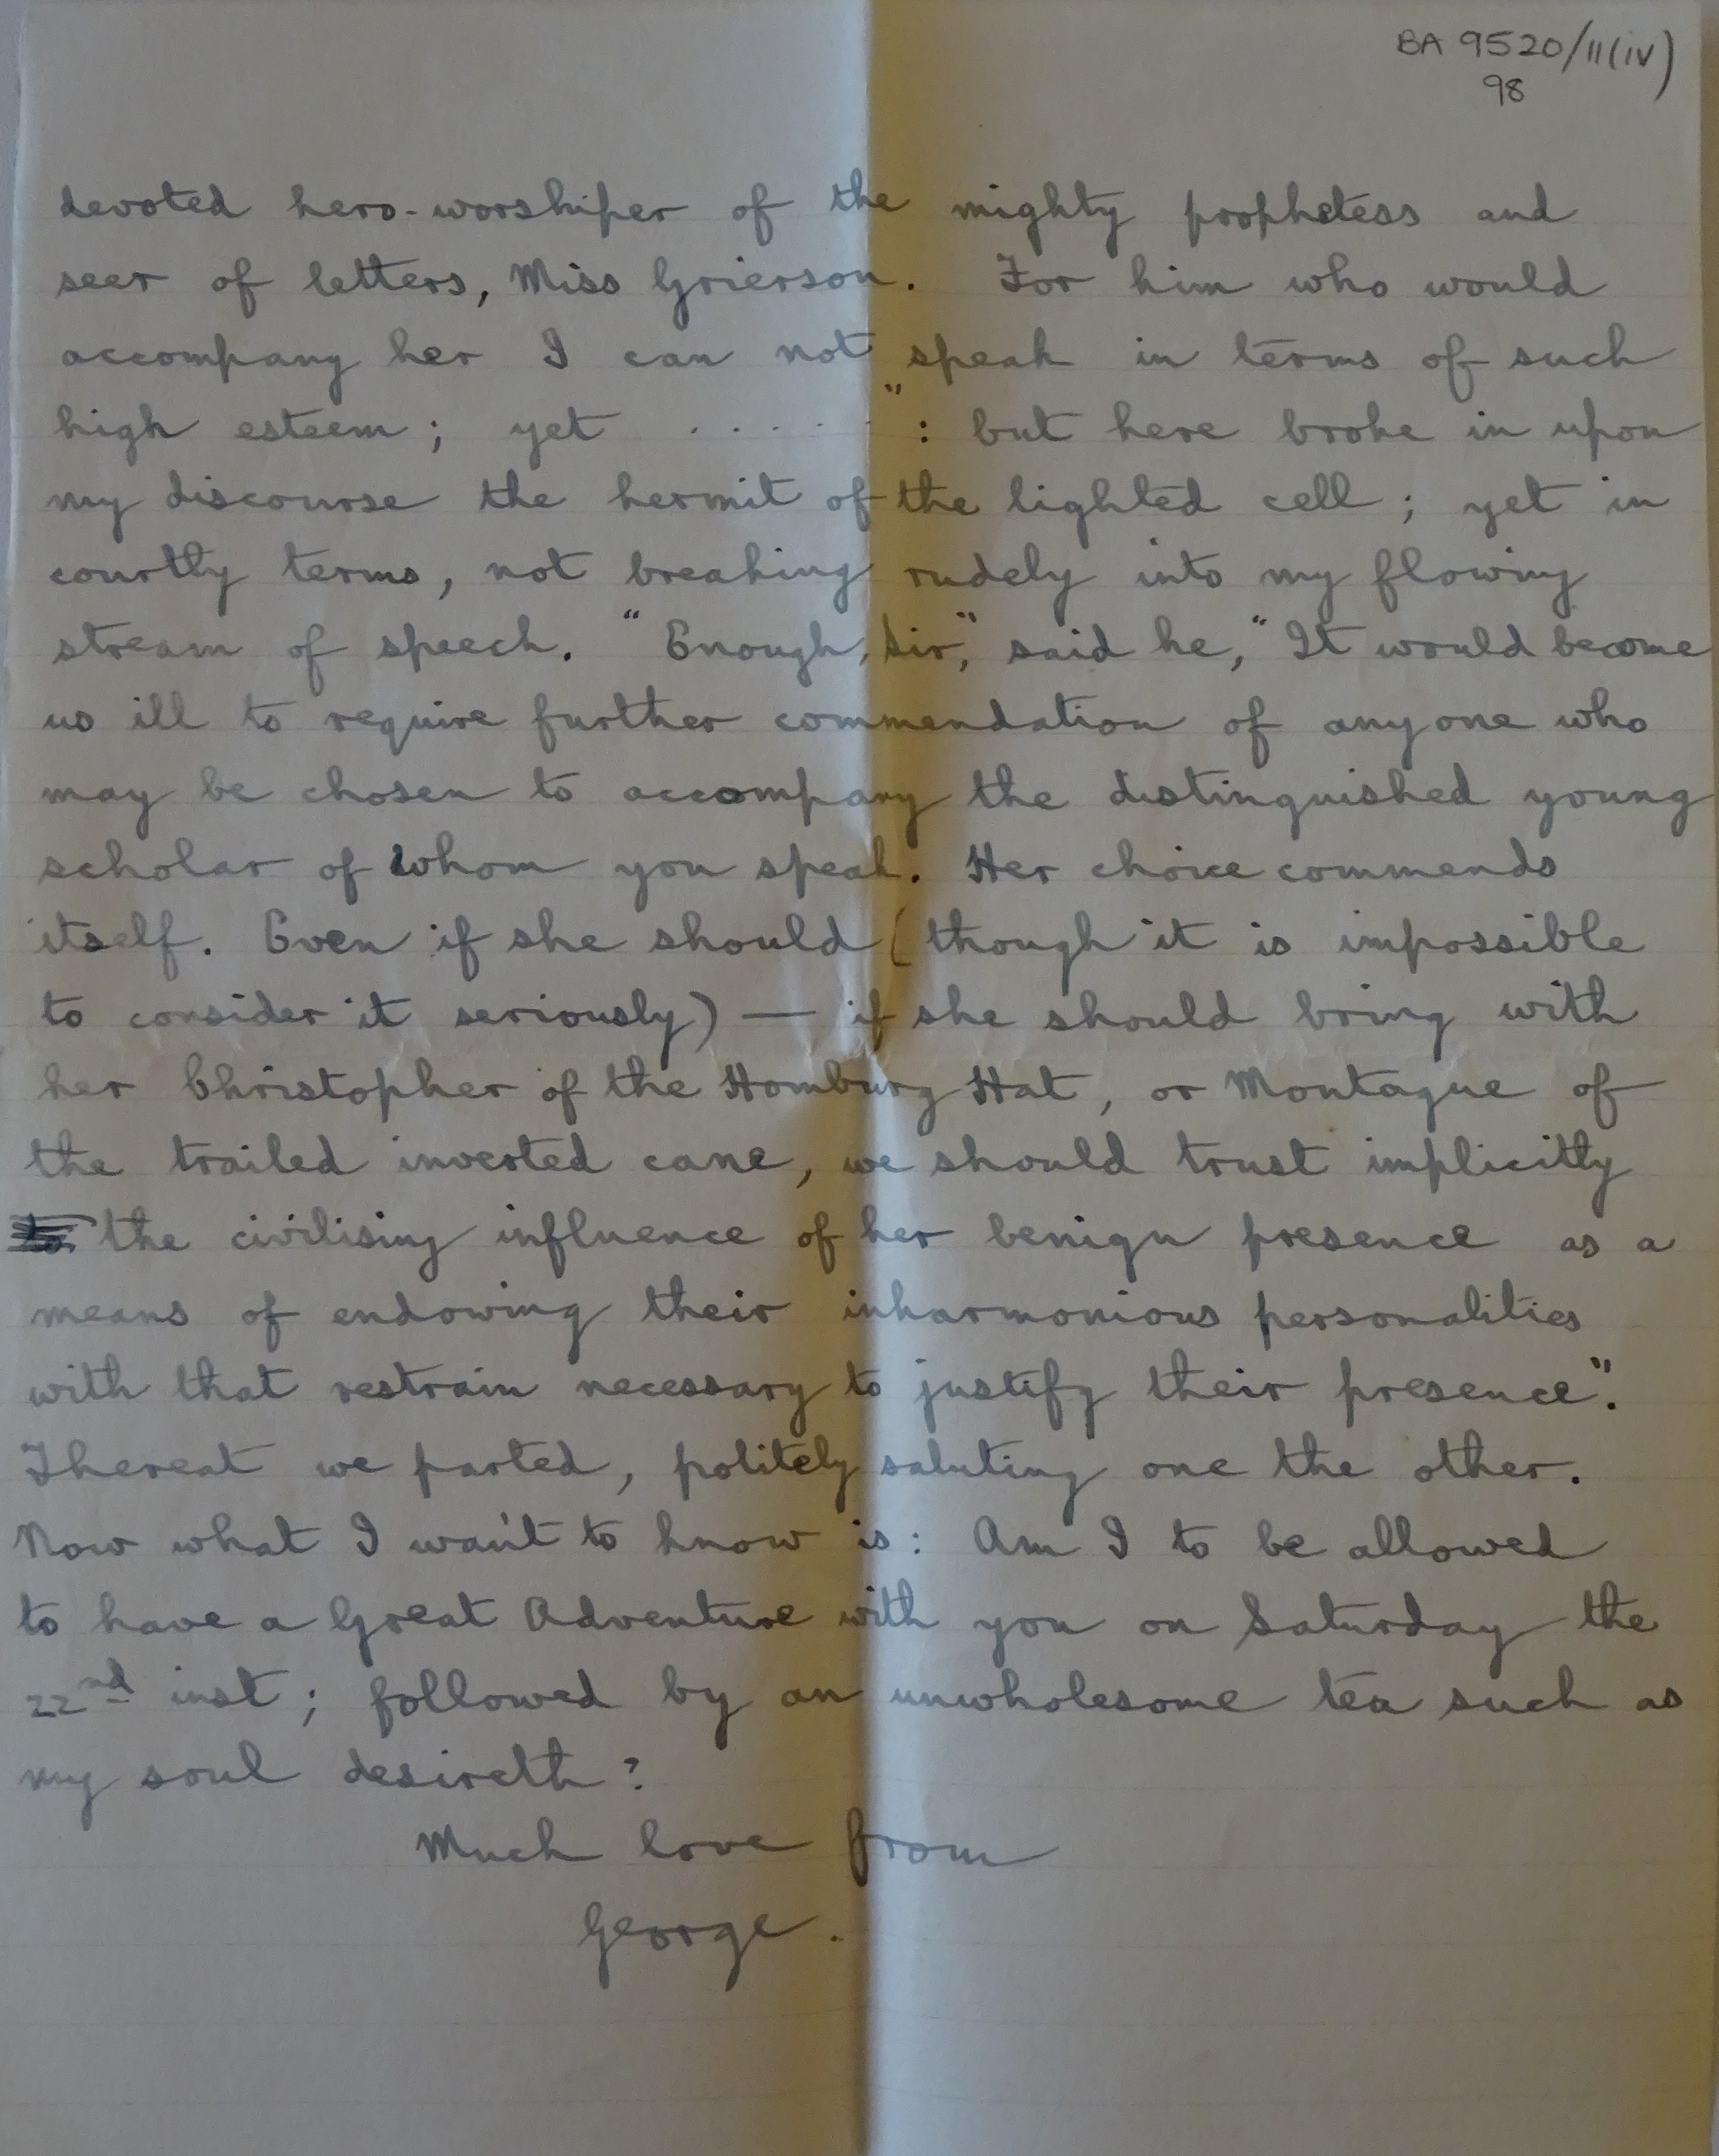 BA 9520/11(iv)
98
devoted hero-worshiper of the mighty prophetess and
seer of letters, Miss Grierson. For him who would
accompany her I can not speak in terms of such
high esteem; yet . . . . . ." : but here broke in upon
my discourse the hermit of the lighted cell; yet in
courtly terms, not breaking rudely into my flowing
stream of speech. "Enough, Sir," said he, "It would become
us ill to require further commendation of anyone who
may be chosen to accompany the distinguished young
scholar of whom you speak. Her choice commends
itself. Even if she should (though it is impossible
to consider it seriously) — if she should bring with
her Christopher of the Homburg Hat, or Montague of
the trailed inverted cane, we should trust implicitly
the civilising influence of her benign presence as a
means of endowing their inharmonious personalities
with that restrain necessary to justify their presence".
Thereat we parted, politely saluting one the other.
Now what I want to know is: Am I to be allowed
to have a Great Adventure with you on Saturday the
22nd inst; followed by an unwholesome tea such as
my soul desireth?
Much love from
George.